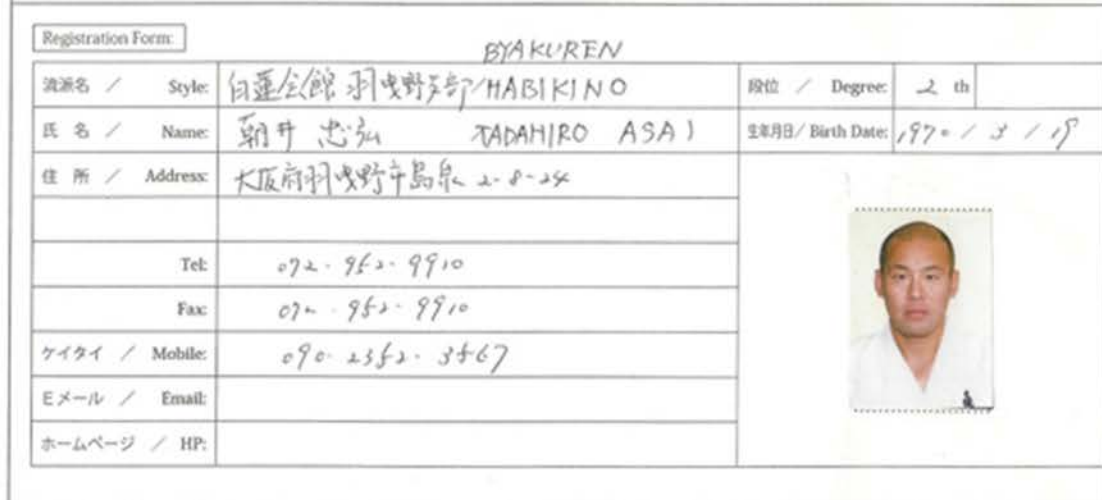 Registration Form:
BYAKUREN
流派名 / Style: 白蓮会館 羽曳野支部/HABIKINO
段位 / Degree: 2 th
氏 名 / Name: 朝井 忠弘 TADAHIRO ASAI
生年月日/ Birth Date: 1970 / 3 / 19
住 所 / Address: 大阪府羽曳野市島泉 2-8-24
Tel: 072-952-9910
Fax: 072-952-9910
ケイタイ / Mobile: 090-2352-3567
Eメール / Email:
ホームページ / HP: